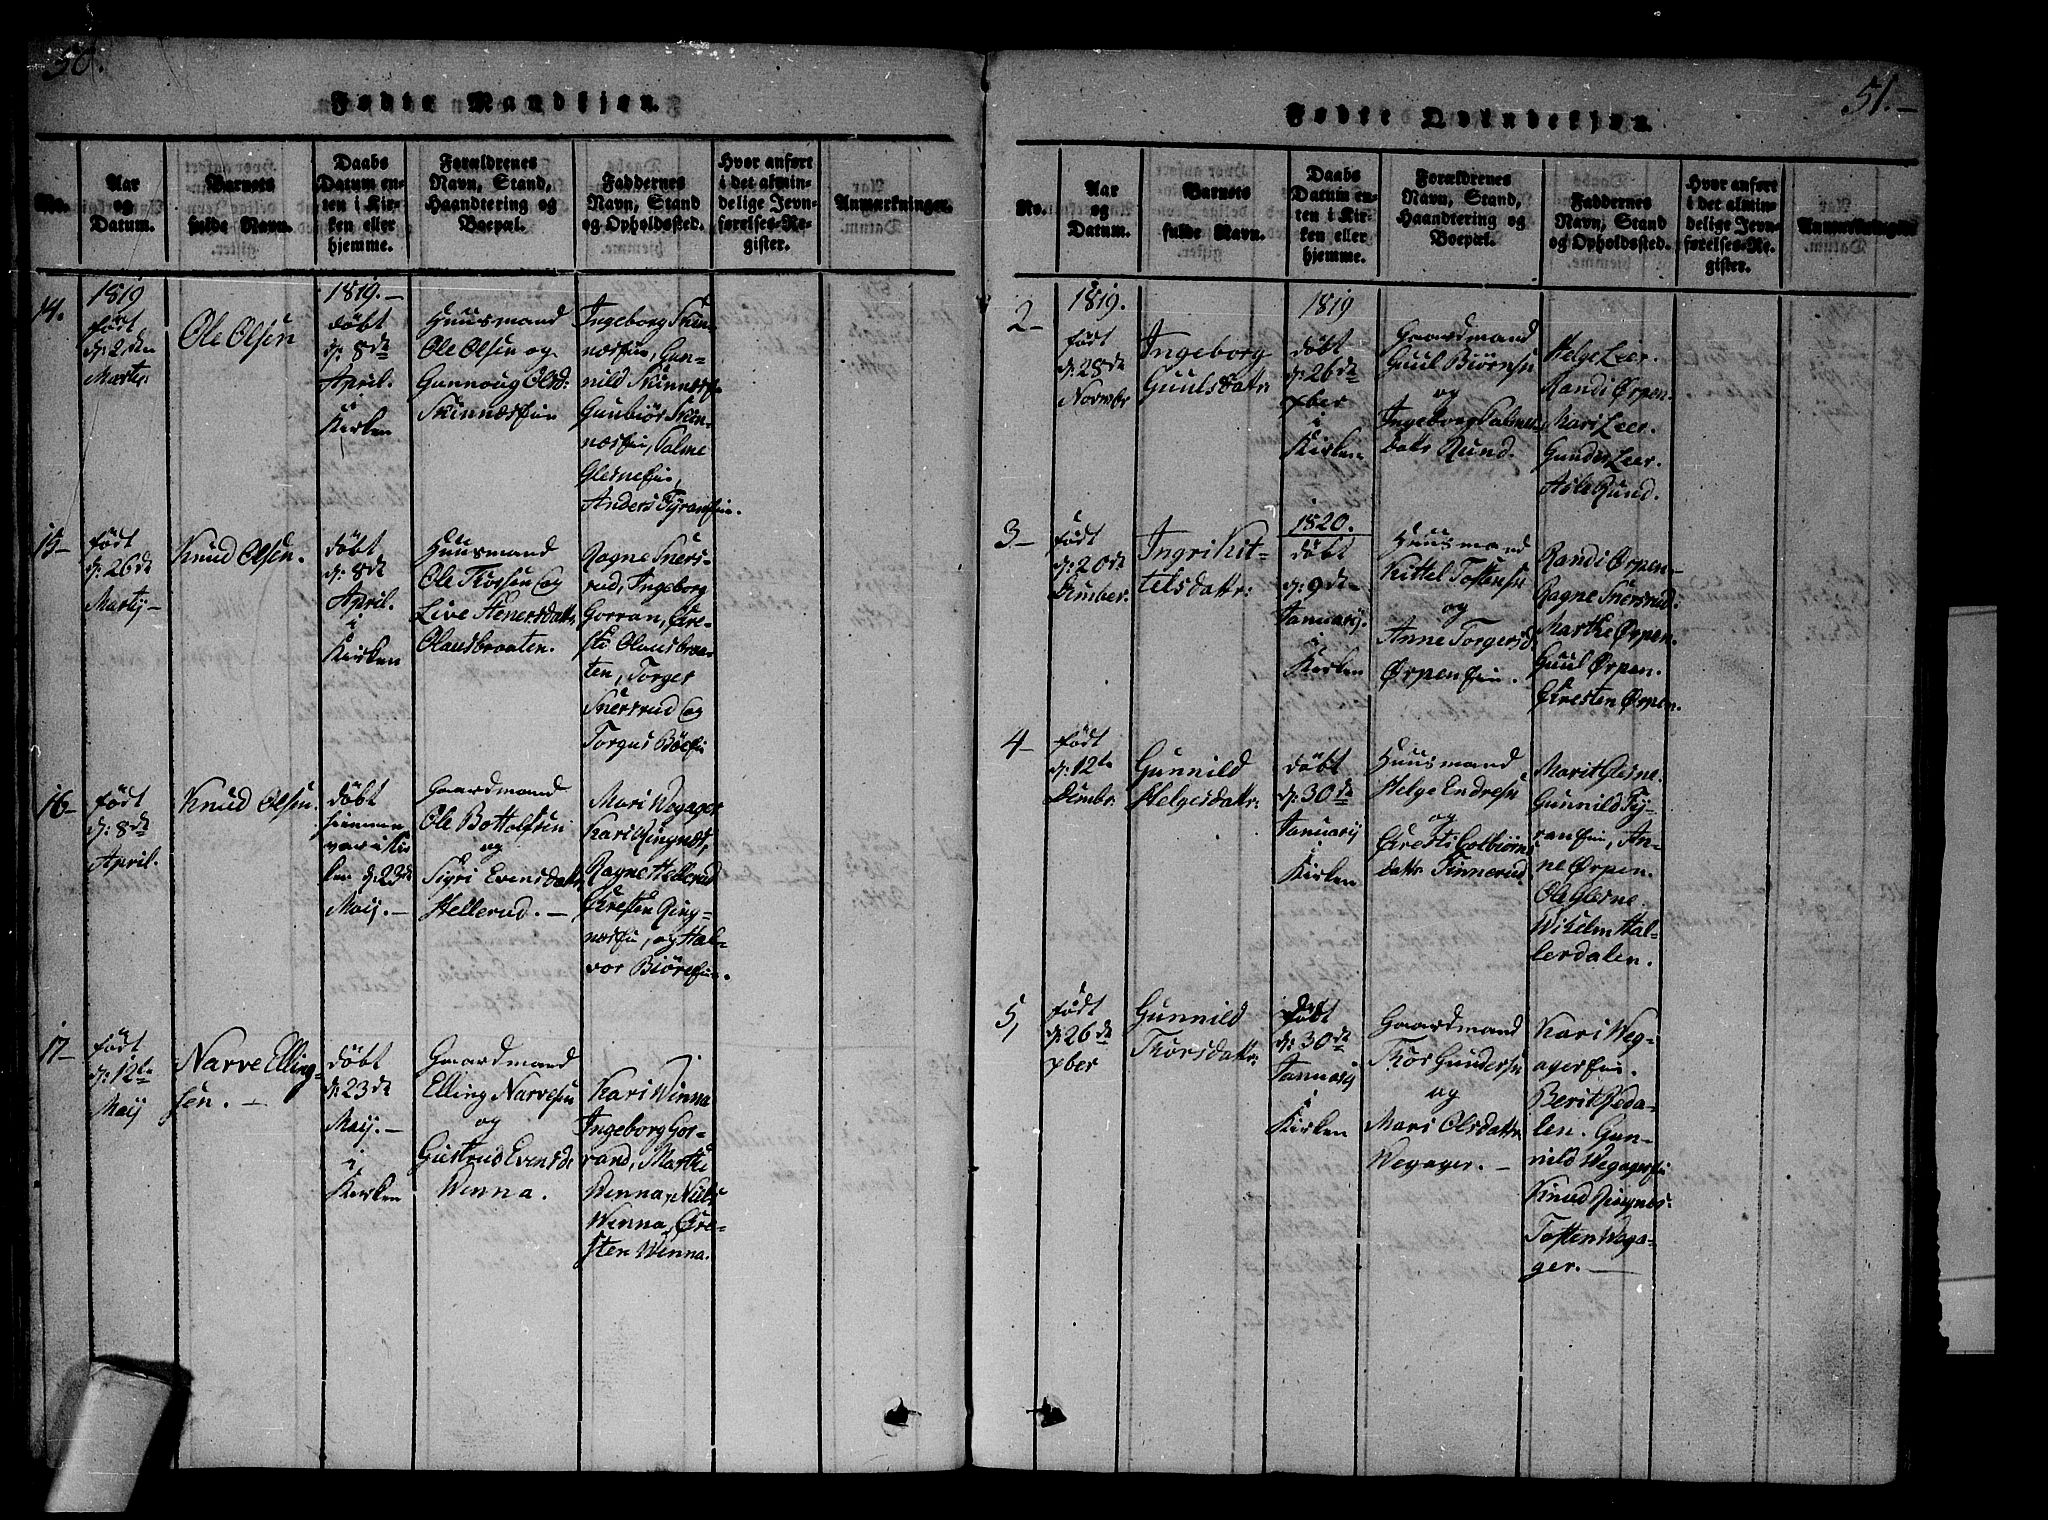 50.
Fødte Mandkjøn.
No.
Aar
og
Datum.
Barnets
fulde Navn.
Daabs
Datum en-
ten i Kir-
ken eller
hjemme.
Forældrenes
Navn, Stand,
Haandtering og
Boepæl.
Faddernes
Navn, Stand
og Opholdssted.
Hvor anført
i det almin-
delige Jevn-
førelses-Re-
gister.
Anmærkninger.
14.
1819
født
d: 2den
Martij.
Ole Olsen
1819.-
döbt
d: 8de
April.
i
Kirken
Huusmand
Ole Olsen og
Gunnoug Olsd:
Skinnæsfin
Ingeborg Skin-
næsfin, Gun-
nild Skinnæsfin
Gunbiör Skin-
næsfin, Palme
Glesnefin,
Anders Tyranfin.
15-
født
d: 26de
Martij-
Knud Olsen.
döbt
d: 8de
April.
i
Kirken
Huusmand
Ole Thorsen og
Live Stenersdattr
Olausbraaten.
Ragne Sners-
rud, Ingeborg
Gorran, Chre-
sti Olausbraa-
ten, Torger
Snersrud og
Torgus Böefin
16-
født
d: 8de
April.
Knud Olsen.
döbt
hiemme
var i Kir
ken d: 23de
Maij.-
Gaardmand
Ole Bottolfsen
og
Sigri Evensdattr
Hellerud.-
Mari Wegager
Kari Ringnæs,
Ragne Hellerud
Chresten Ring-
næsfin, og Hal-
vor Biörefin.
17-
født
d: 12te
Maij
Narve Elling-
sen.-
döbt
d: 23de
Maij.-
i
Kirken
Gaardmand
Elling Narvesen
og
Giertrud Evensd:
Wenna.
Kari Winna
Ingeborg Gor-
rand, Marthe
Wenna, Niels
Winna, Chre-
sten Winna.
51.-
Fødte Qvindekjøn.
No.
Aar
og
Datum.
Barnets
fulde Navn.
Daabs
Datum en-
ten i Kir-
ken eller
hjemme.
Forældrenes
Navn, Stand,
Haandtering og
Boepæl.
Faddernes
Navn, Stand
og Opholdssted.
Hvor anført
i det almin-
delige Jevn-
førelses-Re-
gister.
Anmærkninger.
2-
1819.
født
d: 28de
Novmbr
Ingeborg
Guulsdatr.
1819
döbt
d: 26de
xber
i
Kirken
Gaardmand
Guul Biörnsn
og
Ingeborg Palmes
datr Rund.
Helge Leer.
Randi Ørpen.
Mari Leer.
Gunder Leer.
Asle Rund.
3-
født
d: 20de
Dcmber.
Ingri Kit-
telsdattr:
1820.
döbt
d: 9de
Januarij.
i
Kirken
Huusmand
Kittel Tostensn
og
Anne Torgersd:
Ørpenfin.
Randi Ørpen-
Ragne Snersrud:
Marthe Ørpen.
Guul Ørpen.
Chresten Ørpen.
4-
født
d: 12te
Dcmbr.
Gunnild
Helgesdattr:
döbt
d: 30de
Januarij
i
Kirken
Huusmand
Helge Endresn
og
Chresti Colbiörns
dattr Finnerud.
Marit Glesne.
Gunnild Ty-
ranfin, An-
ne Ørpen.
Ole Glesne.
Wilhelm Hal-
lerdalen.
5,
født
d: 26de
xber
Gunnild
Thorsdattr:
döbt
d: 30de
Januarij
i
Kirken
Gaardmand
Thor Gundersn
og
Mari Olsdattr
Wegager.-
Kari Weg-
agerfin.
Berit Beda-
len. Gun-
nild Wegagerfin
Knud Ringnæs.
Tosten Wega-
ger.-